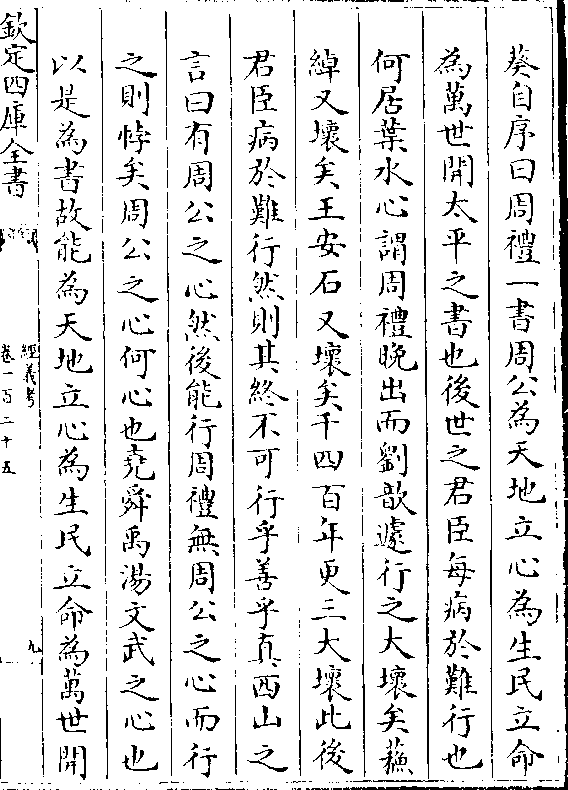 葵自序曰周禮一書周公為天地立心為生民立命
為萬世開太平之書也後世之君臣每病於難行也
何居葉水心謂周禮晚出而劉歆遽行之大壞矣蘇
綽又壞矣王安石又壞矣千四百年更三大壞此後
君臣病於難行然則其終不可行乎善乎真西山之
言曰有周公之心然後能行周禮無周公之心而行
之則悖矣周公之心何心也堯舜禹湯文武之心也
以是為書故能為天地立心為生民立命為萬世開
欽定四庫全書
經義考
卷一百二十五
九